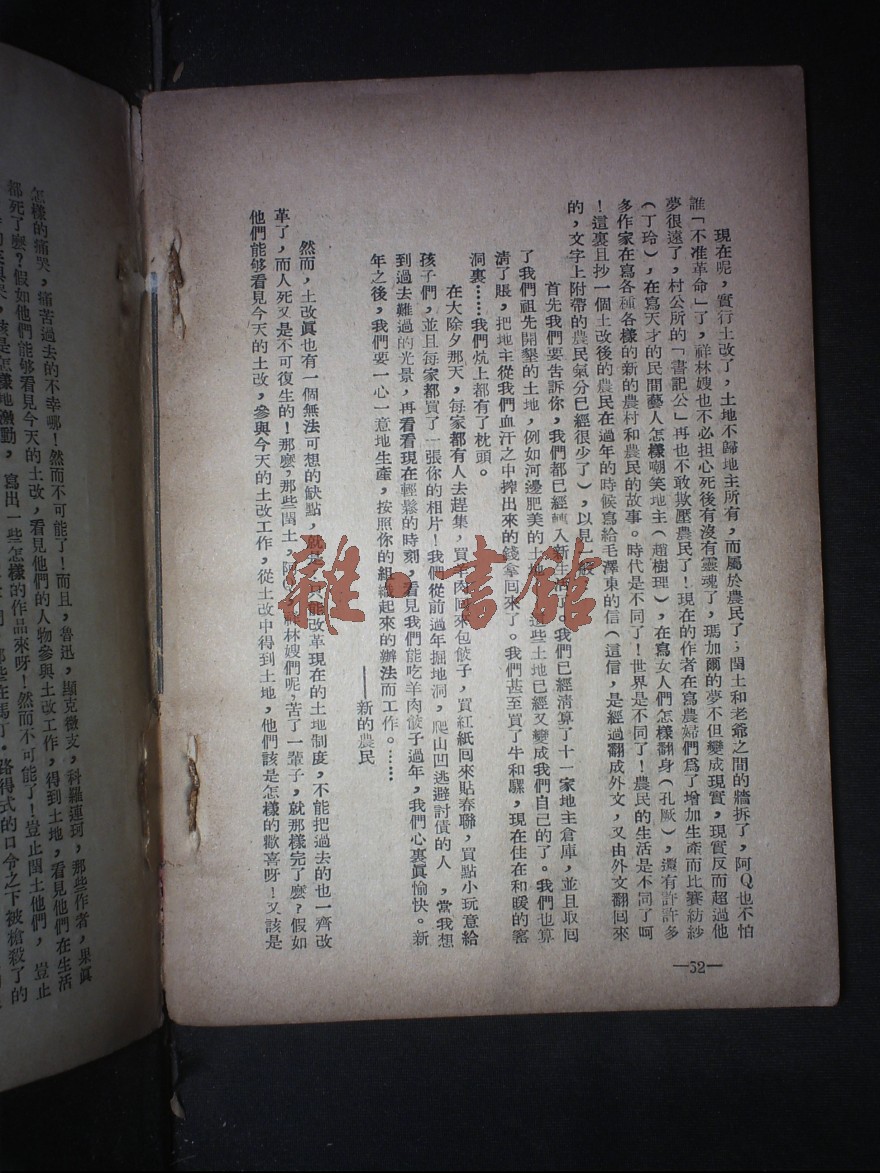 現在呢，實行土改了，土地不歸地主所有，而屬於農民了；閏土和老爺之間的牆拆了，阿Q也不怕
誰「不准革命」了，祥林嫂也不必担心死後有沒有靈魂了，瑪加爾的夢不但變成現實，現實反而超過他
夢很遠了，村公所的「書記公」再也不敢欺壓農民了！現在的作者在寫農婦們爲了增加生產而比賽紡紗
（丁玲），在寫天才的民間藝人怎樣嘲笑地主（趙樹理），在寫女人們怎樣翻身（孔厥），還有許許多
多作家在寫各種各樣的新的農村和農民的故事。時代是不同了！世界是不同了！農民的生活是不同了呵
！這裏且抄一個土改後的農民在過年的時候寫給毛澤東的信（這信，是經過翻成外文，又由外文翻囘來
的，文字上附帶的農民氣分已經很少了），以見一般
首先我們要告訴你，我們都已經轉入新生活了，我們已經清算了十一家地主倉庫，並且取囘
了我們祖先開墾的土地，例如河邊肥美的土地，這些土地已經又變成我們自己的了。我們也算
清了賬，把地主從我們血汗之中搾出來的錢拿囘來了。我們甚至買了牛和騾，現在住在和暖的窰
洞裏……我們炕上都有了枕頭。
在大除夕那天，每家都有人去趕集，買羊肉囘來包餃子，買紅紙囘來貼春聯，買點小玩意給
孩子們，並且每家都買了一張你的相片！我們從前過年掘地洞，爬山凹逃避討債的人，當我想
到過去難過的光景，再看看現在輕鬆的時刻，看見我們能吃羊肉餃子過年，我們心裏眞愉快。新
年之後，我們要一心一意地生產，按照你的組織起來的辦法而工作。……
——新的農民
然而，土改眞也有一個無法可想的缺點，就是只能改革現在的土地制度，不能把過去的也一齊改
革了，而人死又是不可復生的！那麼，那些閏土，阿Q，祥林嫂們呢，苦了一輩子，就那樣完了麼？假如
他們能够看見今天的土改，參與今天的土改工作，從土改中得到土地，他們該是怎樣的歡喜呀！又該是
—52—
怎樣的痛哭，痛苦過去的不幸哪！然而不可能了！而且，魯迅，顯克微支，科羅連珂，那些作者，果眞
都死了麼？假如他們能够看見今天的土改，看見他們的人物參與土改工作，得到土地，看見他們在生活
該是怎樣地激動，寫出一些怎樣的作品來呀！然而不可能了！豈止閏土他們，豈止
路得式的口令之下被槍殺了的
雜·書館